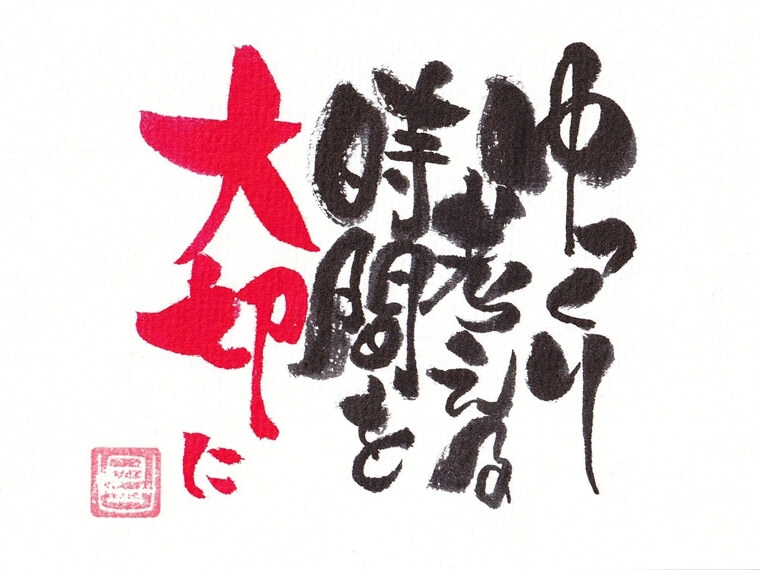 ゆっくり
考える
時間を
大切に